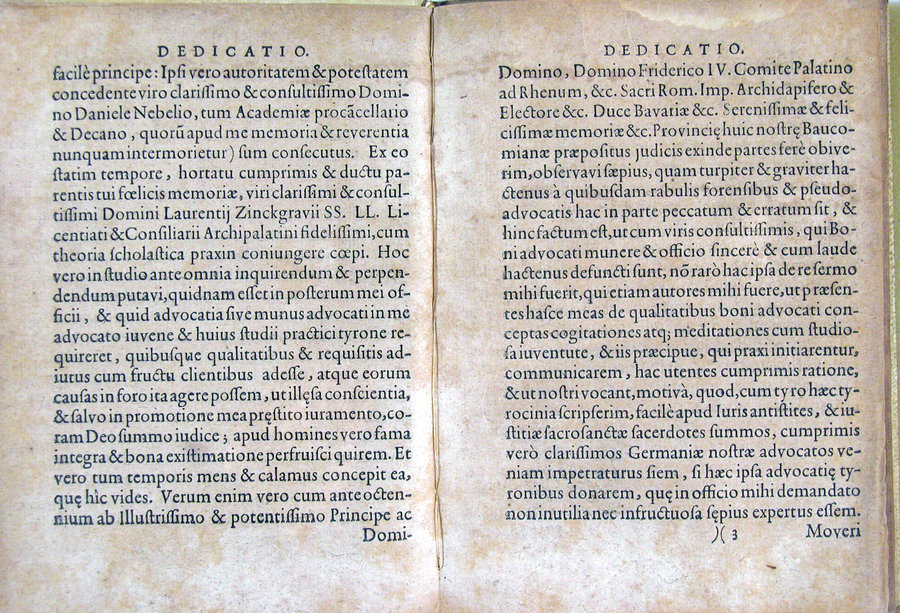 DEDICATIO.
facilè principe: Ipsi vero autoritatem & potestatem
concedente viro clarissimo & consultissimo Domi-
no Daniele Nebelio, tum Academiæ procãcellario
& Decano, quorũ apud me memoria & reverentia
nunquam intermorietur) sum consecutus. Ex eo
statim tempore, hortatu cumprimis & ductu pa-
rentis tui fœlicis memoriæ, viri clarissimi & consul-
tissimi Domini Laurentij Zinckgravii SS. LL. Li-
centiati & Consiliarii Archipalatini fidelissimi, cum
theoria scholastica praxin coniungere cœpi. Hoc
vero in studio ante omnia inquirendum & perpen-
dendum putavi, quidnam esset in posterum mei of-
ficii, & quid advocatia sive munus advocati in me
advocato iuvene & huius studii practici tyrone re-
quireret, quibusque qualitatibus & requisitis ad-
iutus cum fructu clientibus adesse, atque eorum
causas in foro ita agere possem, ut illęsa conscientia,
& salvo in promotione mea pręstito iuramento, co-
ram Deo summo iudice; apud homines vero fama
integra & bona existimatione perfruisci quirem. Et
vero tum temporis mens & calamus concepit ea,
quę hîc vides. Verum enim vero cum ante octen-
nium ab Illustrissimo & potentissimo Principe ac
Domi-
DEDICATIO.
Domino, Domino Friderico IV. Comite Palatino
ad Rhenum, &c. Sacri Rom. Imp. Archidapifero &
Electore &c. Duce Bavariæ &c. Serenissimæ & feli-
cissimæ memoriæ &c. Provincię huic nostrę Bauco-
mianæ præpositus judicis exinde partes ferè obive-
rim, observavi sæpius, quam turpiter & graviter ha-
ctenus à quibusdam rabulis forensibus & pseudo-
advocatis hac in parte peccatum & erratum sit, &
hinc factum est, ut cum viris consultissimis, qui Bo-
ni advocati munere & officio sincerè & cum laude
hactenus defuncti sunt, nõ rarò hac ipsa de re sermo
mihi fuerit, qui etiam autores mihi fuere, ut præsen-
tes hasce meas de qualitatibus boni advocati con-
ceptas cogitationes atq; meditationes cum studio-
sa iuventute, & iis præcipue, qui praxi initiarentur,
communicarem, hac utentes cumprimis ratione,
& ut nostri vocant, motivà, quod, cum tyro hæc ty-
rocinia scripserim, facilè apud Iuris antistites, & iu-
stitiæ sacrosanctæ sacerdotes summos, cumprimis
verò clarissimos Germaniæ nostræ advocatos ve-
niam impetraturus siem, si hæc ipsa advocatię ty-
ronibus donarem, quę in officio mihi demandato
non inutilia nec infructuosa sępius expertus essem.
)( 3 Moveri